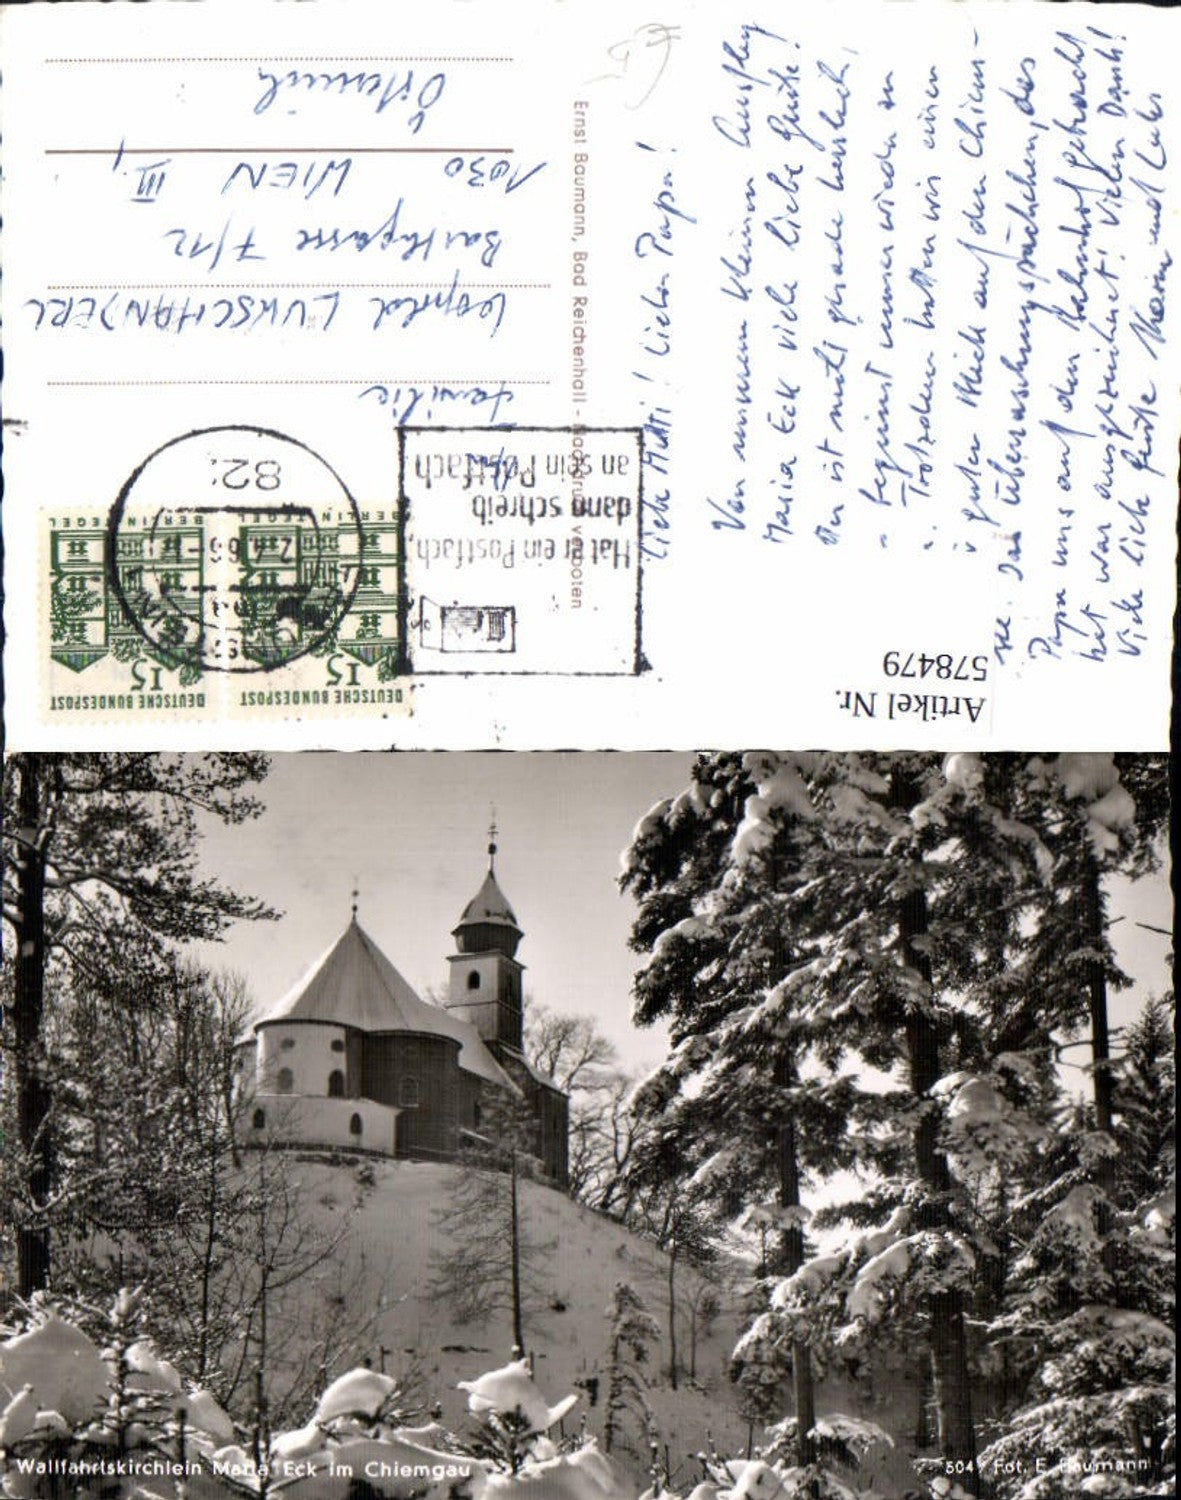 Liebe Mutti! Lieber Papa!
Von unserem kleinen Ausflug
Maria Eck viele liebe Grüße!
Der ist nicht gerade herrlich,
beginnt immer wieder zu
Trotzdem hatten wir einen
guten Blick auf den Chiem-
see. Das Überraschungspäckchen, das
Papa uns auf den Bahnhof gebracht
hat war ausgezeichnet! Vielen Dank!
Viele liebe Grüße
Ernst Baumann, Bad Reichenhall - Nachdruck verboten
Familie
Leopold LUKSCHANDERL
7/12
1030 WIEN III,
Österreich
DEUTSCHE BUNDESPOST
15
BERLIN TEGEL
DEUTSCHE BUNDESPOST
15
BERLIN TEGEL
822
Hat er ein Postfach,
dann schreib
an sein Postfach
Artikel Nr.
578479
Wallfahrtskirchlein Maria Eck im Chiemgau
504 Fot. E. Baumann